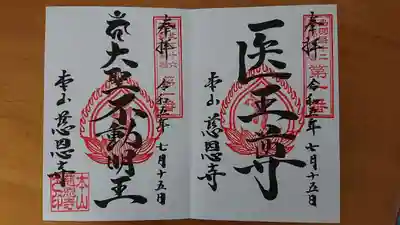 奉拝
第一番
医王尊
令和五年七月十五日
本山 慈恩寺
奉拝
第一番
大聖不動明王
令和五年七月十五日
本山 慈恩寺